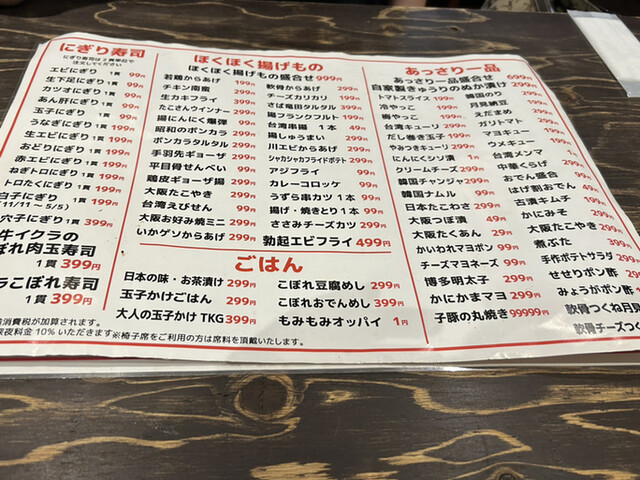 にぎり寿司
にぎり寿司は2貫単位で
注文してください
エビにぎり 1貫 99円
生下足にぎり 1貫 99円
カツオにぎり 1貫 99円
あん肝にぎり 1貫 99円
玉子にぎり 1貫 99円
うなぎにぎり 1貫 199円
生エビにぎり 1貫 199円
おどりにぎり 1貫 199円
赤エビにぎり 1貫 199円
ねぎトロにぎり 1貫 199円
トロたくにぎり 1貫 199円
白子にぎり 1貫 199円
11/11〜5/5)
穴子にぎり 1貫 399円
牛イクラの
ぼれ肉玉寿司
1貫 399円
こぼれ寿司
1貫 399円
ぼくぼく揚げもの
ぼくぼく揚げもの盛合せ 999円
若鶏からあげ 299円
チキン南蛮 299円
生カキフライ 399円
たこさんウインナー 299円
揚にんにく爆弾 99円
昭和のポンカラ 299円
ポンカラタルタル 299円
手羽先ギョーザ 299円
平目骨せんべい 99円
鶏皮ギョーザ揚 299円
大阪たこやき 299円
台湾えびせん 99円
大阪お好み焼ミニ 299円
いかゲソからあげ 299円
軟骨からあげ 299円
チーズカリカリ 199円
さば竜田タルタル 399円
揚フランクフルト 199円
台湾串揚 1本 49円
揚しゅうまい 299円
川エビからあげ 299円
シャカシャカフライドポテト 299円
アジフライ 99円
カレーコロッケ 99円
うずら串カツ 1本 99円
揚げ・焼きとり 1本 99円
ささみチーズカツ 299円
勃起エビフライ 499円
ごはん
日本の味・お茶漬け 299円
玉子かけごはん 299円
大人の玉子かけ TKG 399円
こぼれ豆腐めし 299円
こぼれおでんめし 399円
もみもみオッパイ 1円
消費税が加算されます。
夜料金10%いただきます※椅子席をご利用の方は席料を頂戴いたします。
あっさり一品
あっさり一品盛合せ 699円
自家製きゅうりのぬか漬け 299円
トマトスライス 199円
冷やっこ 199円
梅やっこ 299円
台湾キューリ 299円
だし巻き玉子 199円
やみつきキューリ 299円
にんにくシソ漬 1円
クリームチーズ 299円
韓国チャンジャ 299円
韓国ナムル 99円
日本たこわさ 299円
大阪つぼ漬 49円
大阪たくあん 29円
かいわれマヨポン 99円
チーズマヨネーズ 99円
博多明太子 299円
かにかまマヨ 299円
子豚の丸焼き 99999円
韓国のり
月見納豆
えだまめ
ガリトマト
マヨキュー
ウメキュー
台湾メンマ
中華くらげ
おでん盛合
はげ割おでん
古漬キムチ
かにみそ
大阪たこやき
煮ぶた 399
手作ポテトサラダ
せせりポン酢
みょうがポン酢
軟骨つくね月見
軟骨チーズつく